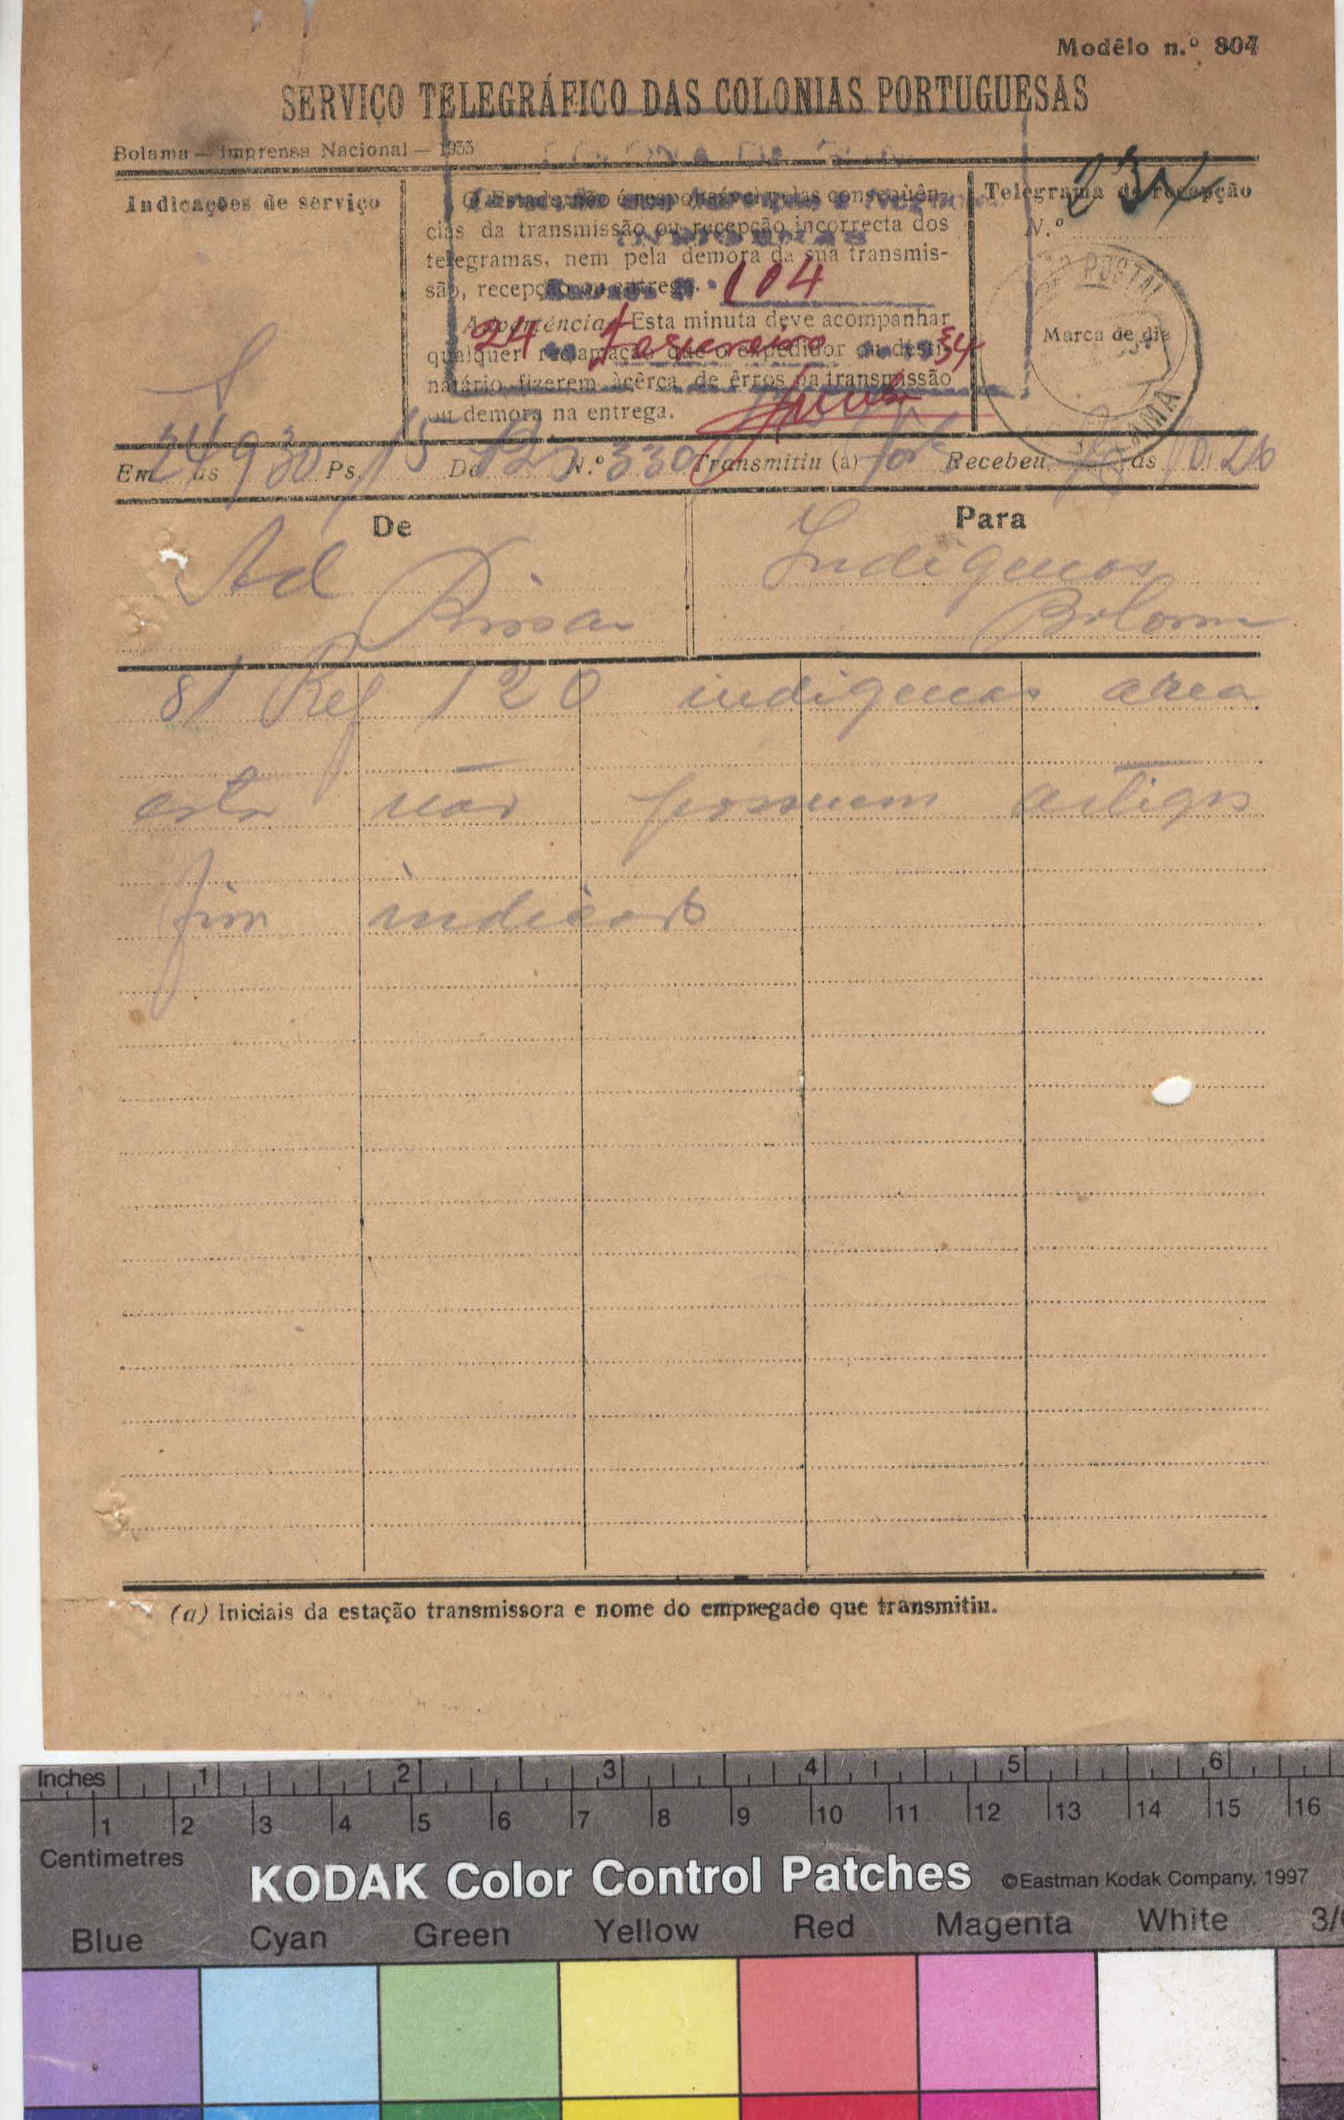 Modêlo n.º 804
SERVIÇO TELEGRÁFICO DAS COLONIAS PORTUGUESAS
Bolama — Imprensa Nacional — 1933
Indicações de serviço
O Estado não é responsável pelas consequên-
cias da transmissão ou recepção incorrecta dos
telegramas, nem pela demora da sua transmis-
são, recepção ou entrega.
104
Advertência: Esta minuta deve acompanhar
24 Fevereiro 34
qualquer reclamação que o expedidor ou desti-
natário fizerem àcêrca de êrros na transmissão
ou demora na entrega.
Telegrama de recepção
N.º
Marca de dia
Em 24 às 9 30 Ps. 15 De N.º 330 Transmitiu (a) Recebeu às 10 20
De
Para
Ad
Bissau
Indigenas
Bolama
81 Ref 120 indigenas area
esta não possuem artigos
fim indicado
(a) Iniciais da estação transmissora e nome do empregado que transmitiu.
Inches 1 2 3 4 5 6
1 2 3 4 5 6 7 8 9 10 11 12 13 14 15 16
Centimetres
KODAK Color Control Patches ©Eastman Kodak Company, 1997
Blue Cyan Green Yellow Red Magenta White 3/